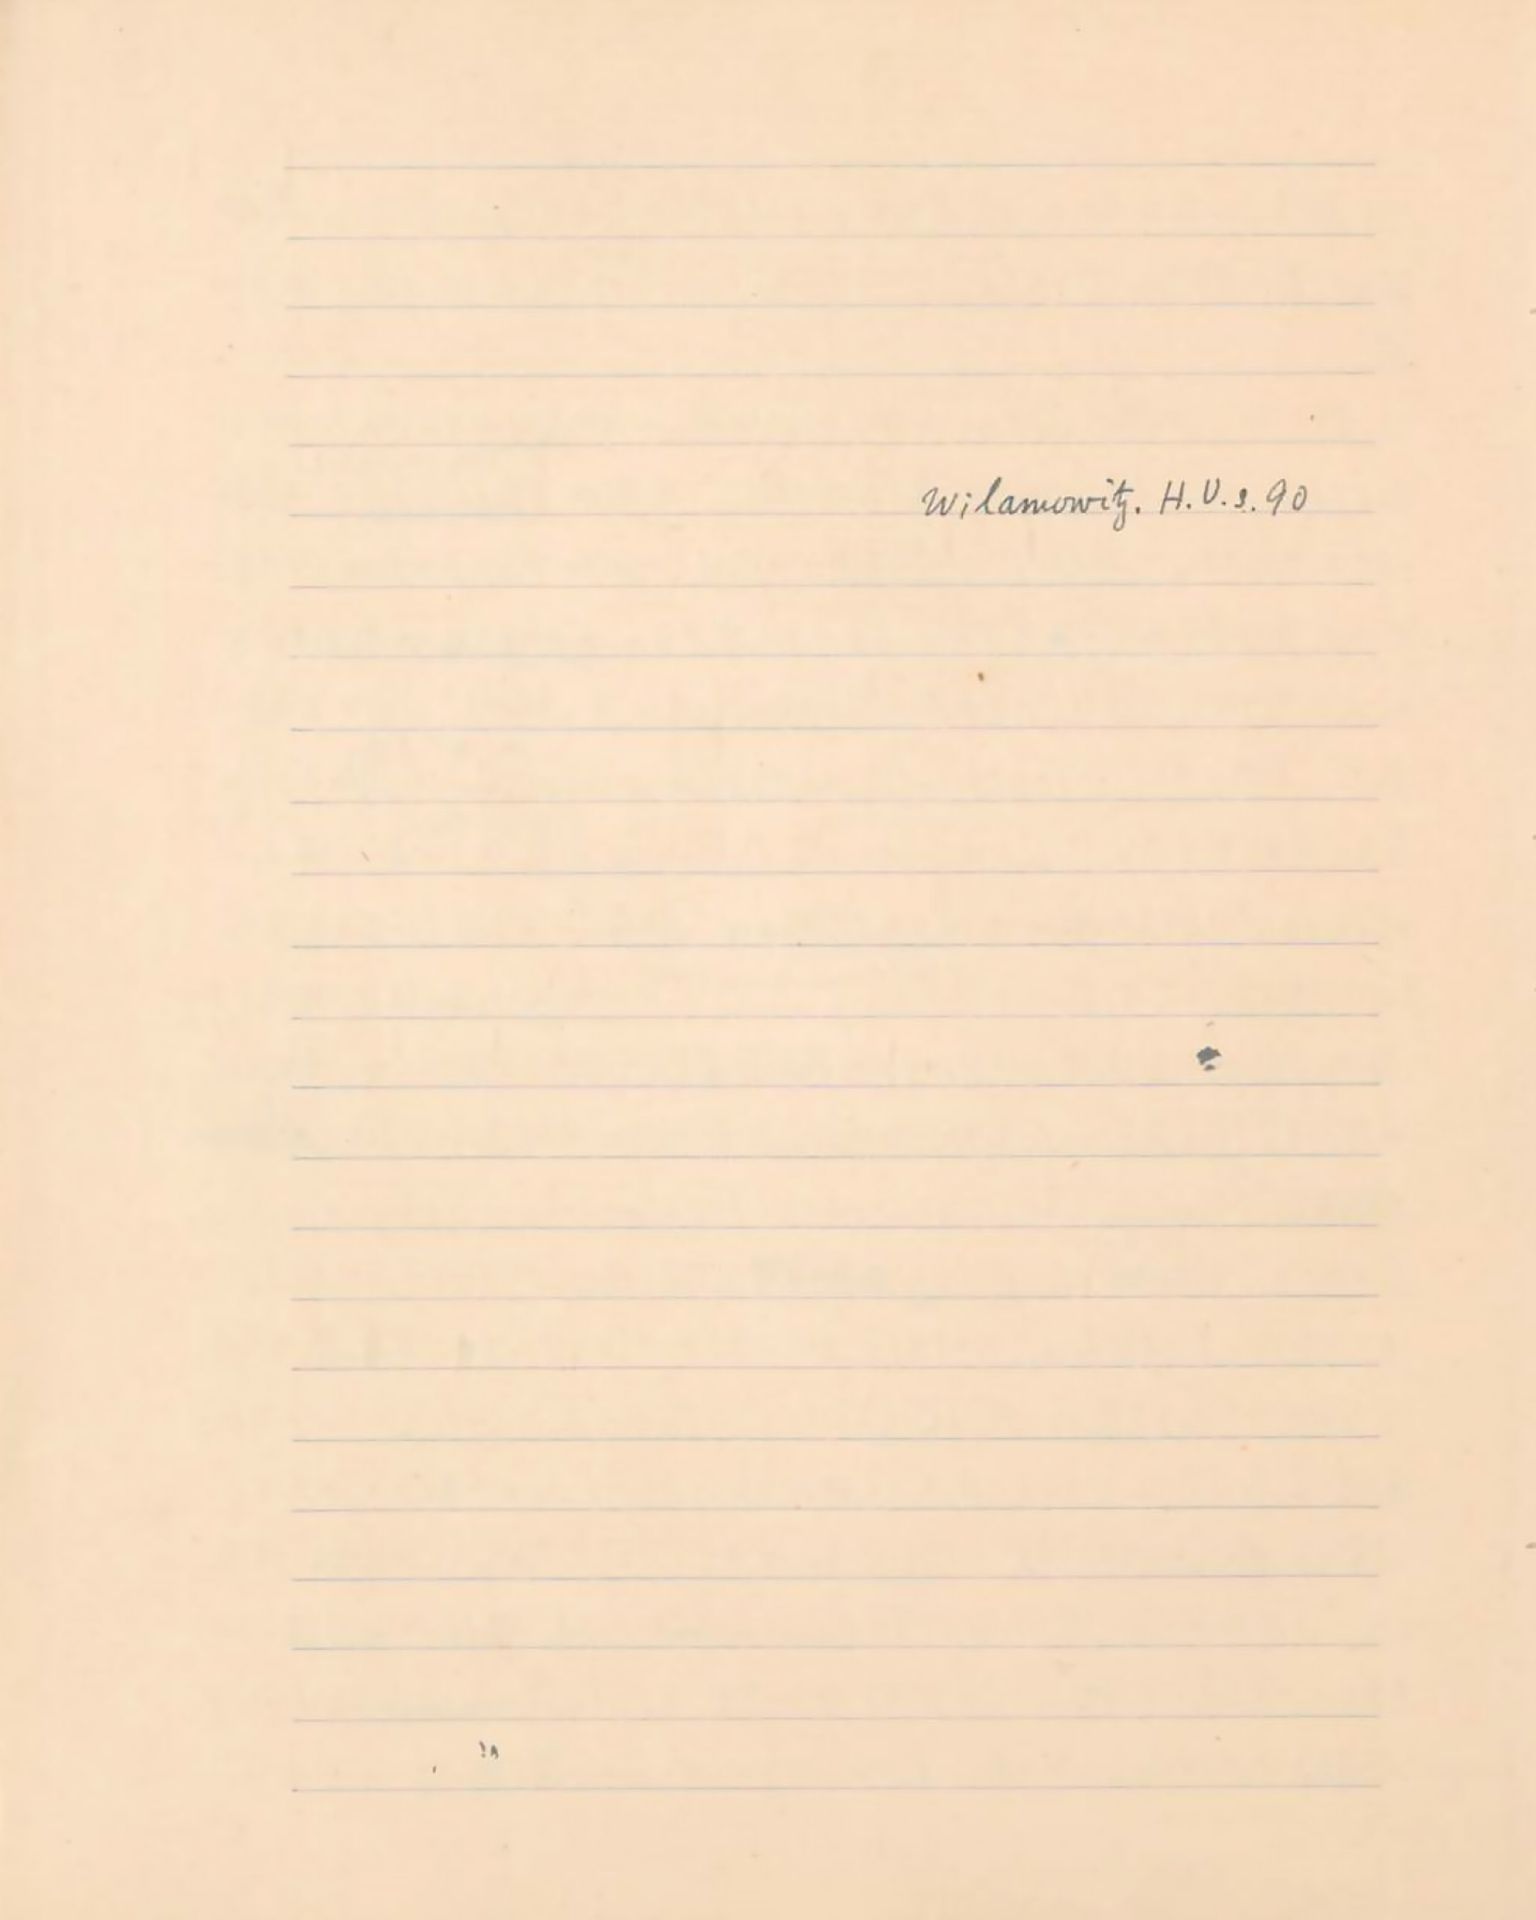 Wilamowitz. H.U.s.90